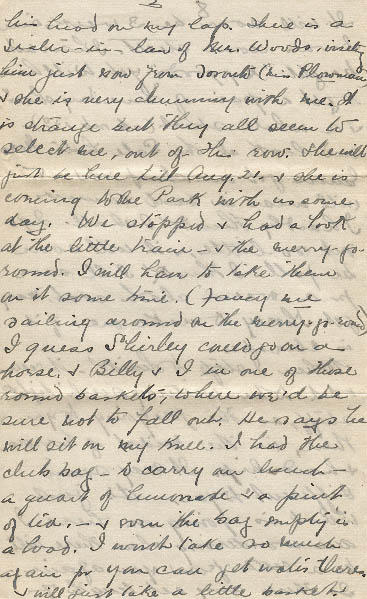 his head on my lap. There is a
sister-in-law of Mr. Woods, visiting
him just now from Toronto (Mrs Plowman)
& she is very chummy with me. It
is strange but they all seem to
select me, out of the row. She will
just be here till Aug. 21. & she is
coming to the Park with us some
day. We stopped & had a look
at the little train - & the merry-go-
round. I will have to take them
on it some time. (Fancy me
sailing around on the merry-go-round)
I guess Shirley could go on a
horse, & Billy & I in one of those
round baskets, where we'd be
sure not to fall out. He says he
will sit on my knee. I had the
club bag - to carry our lunch -
a quart of lemonade & a pint
of tea. - & even the bag empty is
a load. I won't take so much
again for you can get water there.
& will just take a little basket